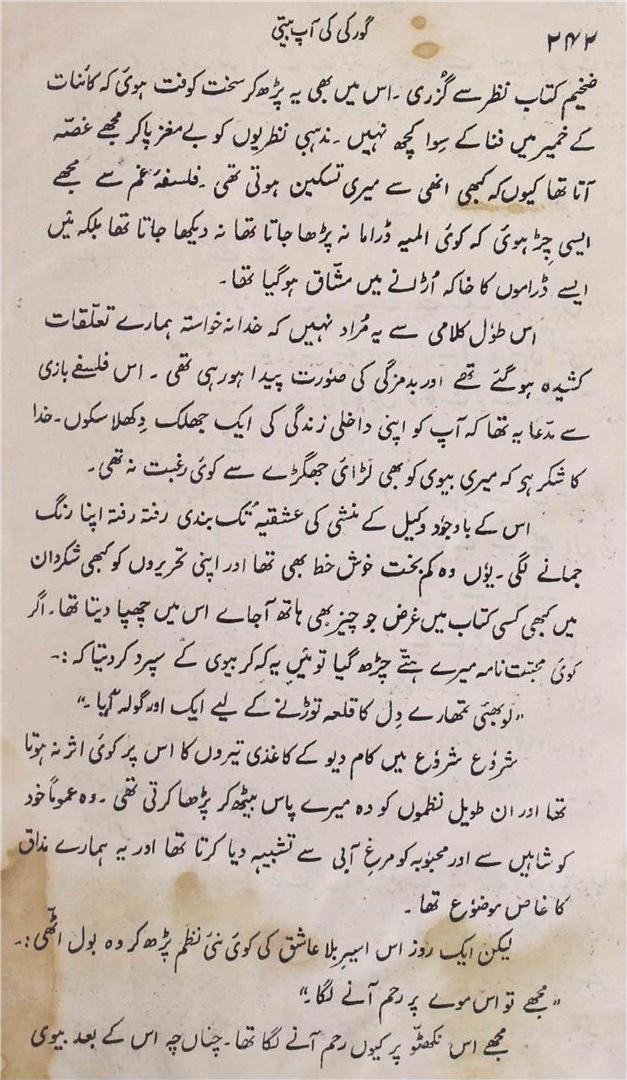 ۲۴۲
گورکی کی آپ بیتی
ضخیم کتاب نظر سے گزری ۔ اس میں بھی یہ پڑھ کر سخت کوفت ہوئی کہ کائنات
کے خمیر میں فنا کے سِوا کچھ نہیں ۔ مذہبی نظریوں کو بے مغز پاکر مجھے غصّہ
آتا تھا کیوں کہ کبھی انھی سے میری تسکین ہوتی تھی ۔ فلسفۂ غم سے مجھے
ایسی چِڑ ہوئی کہ کوئی المیہ ڈراما نہ پڑھا جاتا تھا نہ دیکھا جاتا تھا بلکہ میں
ایسے ڈراموں کا خاکہ اُڑانے میں مشّاق ہوگیا تھا ۔
اس طوٗل کلامی سے یہ مُراد نہیں کہ خدا نہ خواستہ ہمارے تعلّقات
کشیدہ ہوگئے تھے اور بدمزگی کی صوٗرت پیدا ہورہی تھی ۔ اس فلسفے بازی
سے مدّعا یہ تھا کہ آپ کو اپنی داخلی زندگی کی ایک جھلک دِکھلا سکوں ۔ خدا
کا شکر ہو کہ میری بیوی کو بھی لڑائی جھگڑے سے کوئی رغبت نہ تھی ۔
اس کے باوجوٗد وکیل کے منشی کی عشقیہ تُک بندی رفتہ رفتہ اپنا رنگ
جمانے لگی ۔ یوٗں وہ کم بخت خوش خط بھی تھا اور اپنی تحریروں کو کبھی شکردان
میں کبھی کسی کتاب میں غرض جو چیز بھی ہاتھ آجاے اس میں چھپا دیتا تھا ۔ اگر
کوئی محبّت نامہ میرے ہتّے چڑھ گیا تو میَں یہ کہ کر بیوی کے سپرد کر دیتا کہ :۔
”لو بھئی تمھارے دِل کا قلعہ توڑنے کے لیے ایک اور گولہ آیا ۔“
شروٗع شروٗع میں کام دیو کے کاغذی تیروں کا اس پر کوئی اثر نہ ہوتا
تھا اور ان طویل نظموں کو وہ میرے پاس بیٹھ کر پڑھا کرتی تھی ۔ وہ عموماً خود
کو شاہیں سے اور محبوبہ کو مرغِ آبی سے تشبیہہ دیا کرتا تھا اور یہ ہمارے مذاق
کا خاص موضوٗع تھا ۔
لیکن ایک روز اس اسیرِ بلا عاشق کی کوئی نئی نظم پڑھ کر وہ بول اٹھی :۔
”مجھے تو اس موے پر رحم آنے لگا ۔“
مجھے اس نکھٹّو پر کیوں رحم آنے لگا تھا ۔ چناں چہ اس کے بعد بیوی